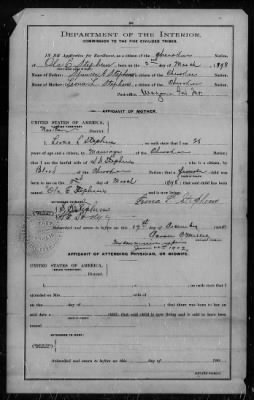 Department of the Interior,
COMMISSION TO THE FIVE CIVILIZED TRIBES.
IN RE Application for Enrollment, as a citizen of the Cherokee Nation,
of Ola E Stephens, born on the 3rd day of March, 1898
Name of Father: Spencer S Stephens, a citizen of the Cherokee Nation.
Name of Mother: Leona L Stephens, a citizen of the Cherokee Nation.
Post-office Wagoner Ind. Ter.
AFFIDAVIT OF MOTHER.
UNITED STATES OF AMERICA,
INDIAN TERRITORY,
District.
I, Leona L Stephens, on oath state that I am 28
years of age and a citizen, by Marriage, of the Cherokee Nation;
that I am the lawful wife of S S Stephens, who is a citizen, by
Blood, of the Cherokee Nation; that a female child was
born to me on the 3rd day of March, 1898; that said child has been
named Ola E Stephens, and is now living.
WITNESSES TO MARK:
Subscribed and sworn to before me this 19th day of December, 1900
AFFIDAVIT OF ATTENDING PHYSICIAN, OR MIDWIFE.
UNITED STATES OF AMERICA,
INDIAN TERRITORY,
District.
I, , a , on oath state that I
attended on Mrs. , wife of
on the day of , 1 ; that there was born to her on
said date a child; that said child is now living and is said to have been
named
WITNESSES TO MARK:
Subscribed and sworn to before me this day of , 190
NOTARY PUBLIC.